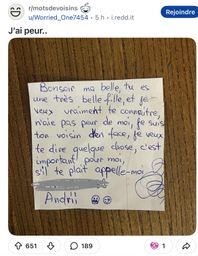 r/motsdevoisins
u/Worried_One7454 • 5 h • i.redd.it
Rejoindre
J'ai peur..
Bonsoir ma belle, tu es
une très belle fille, et je
veux vraiment te connaitre,
n'aie pas peur de moi, je suis
ton voisin d'en face, je veux
te dire quelque chose, c'est
important pour moi,
s'il te plait appelle-moi
Andrii
651
189
1